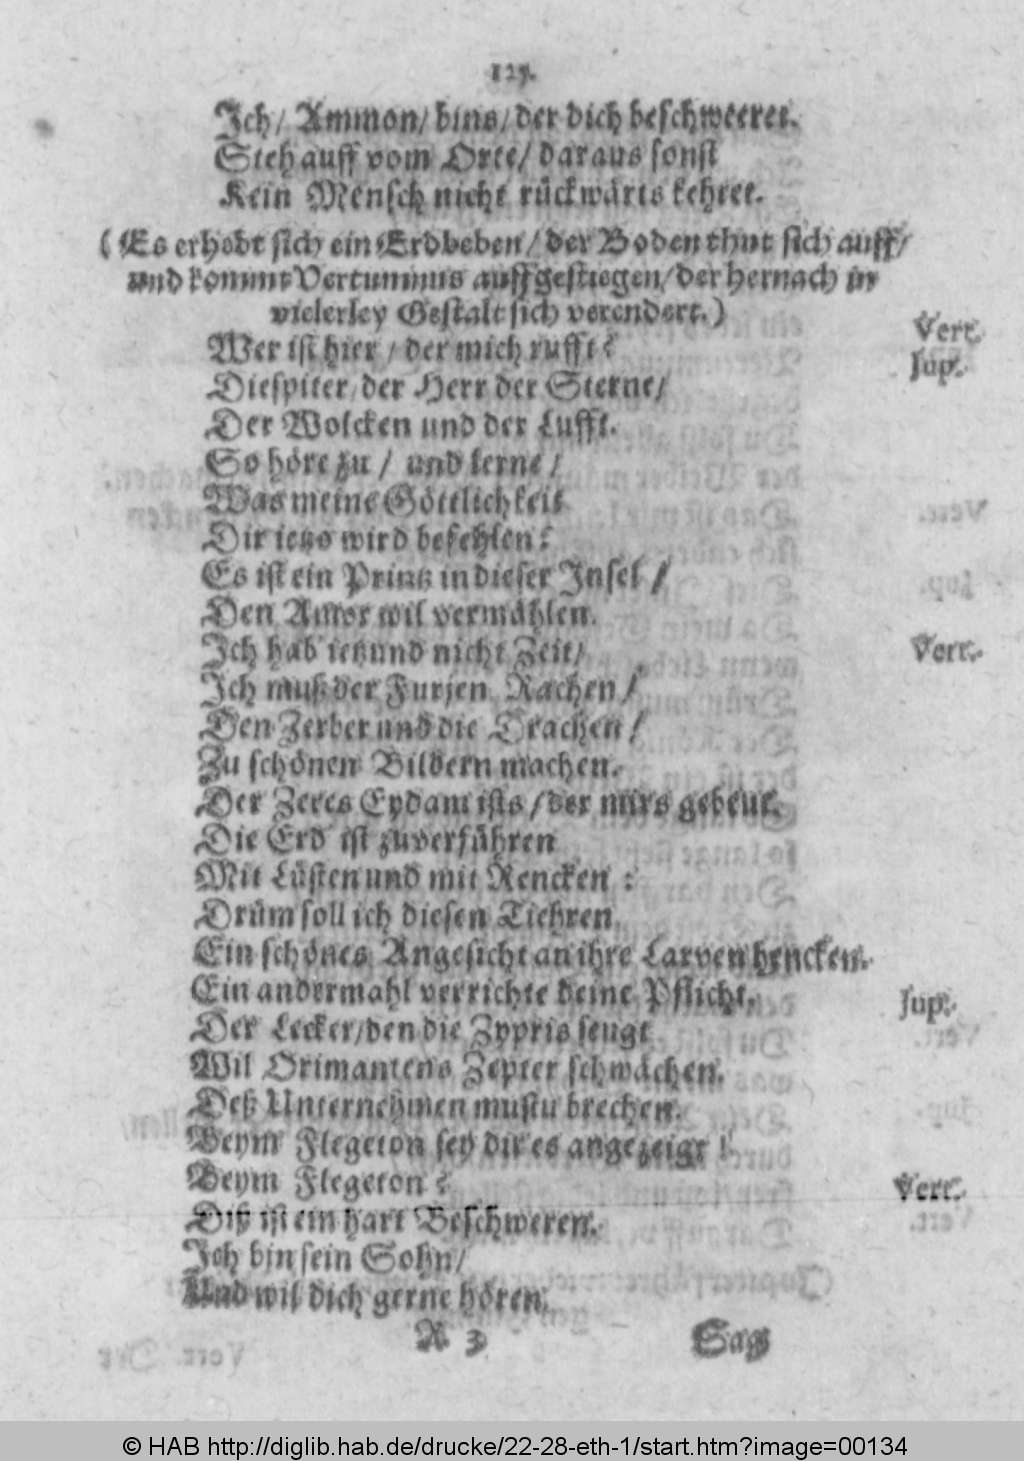 125.
Jch/ Ammon/ bins/ der dich beschweeret.
Steh auff vom Orte/ daraus sonst
Kein Mensch nicht rückwärts kehret.
(Es erhebt sich ein Erdbeben/ der Boden thut sich auff/
und kommt Vertumnus auffgestiegen/ der hernach in
vielerley Gestalt sich verendert.)
Wer ist hier/ der mich rufft? Vert.
Diespiter/ der Herr der Sterne/ Jup.
Der Wolcken und der Lufft.
So höre zu/ und lerne/
Was meine Göttlichkeit
Dir ietzo wird befehlen:
Es ist ein Printz in dieser Jnsel/
Den Amor wil vermählen.
Jch hab ietzund nicht Zeit/ Vert.
Jch muß der Furjen Rachen/
Den Zerber und die Drachen/
Zu schönen Bildern machen.
Der Zeres Eydam ists/ der mirs gebeut.
Die Erd ist zuverführen
Mit Lüsten und mit Rencken:
Drüm soll ich diesen Tiehren
Ein schönes Angesicht an ihre Larven hencken.
Ein andermahl verrichte deine Pflicht. Jup.
Der Lecker/ den die Zypris seugt
Wil Orimantens Zepter schwächen.
Deß Unternehmen mustu brechen.
Beym Flegeton sey dir es angezeigt!
Beym Flegeton? Vert.
Diß ist ein hart Beschweren.
Jch bin sein Sohn/
Und wil dich gerne hören.
3 Sag
© HAB http://diglib.hab.de/drucke/22-28-eth-1/start.htm?image=00134